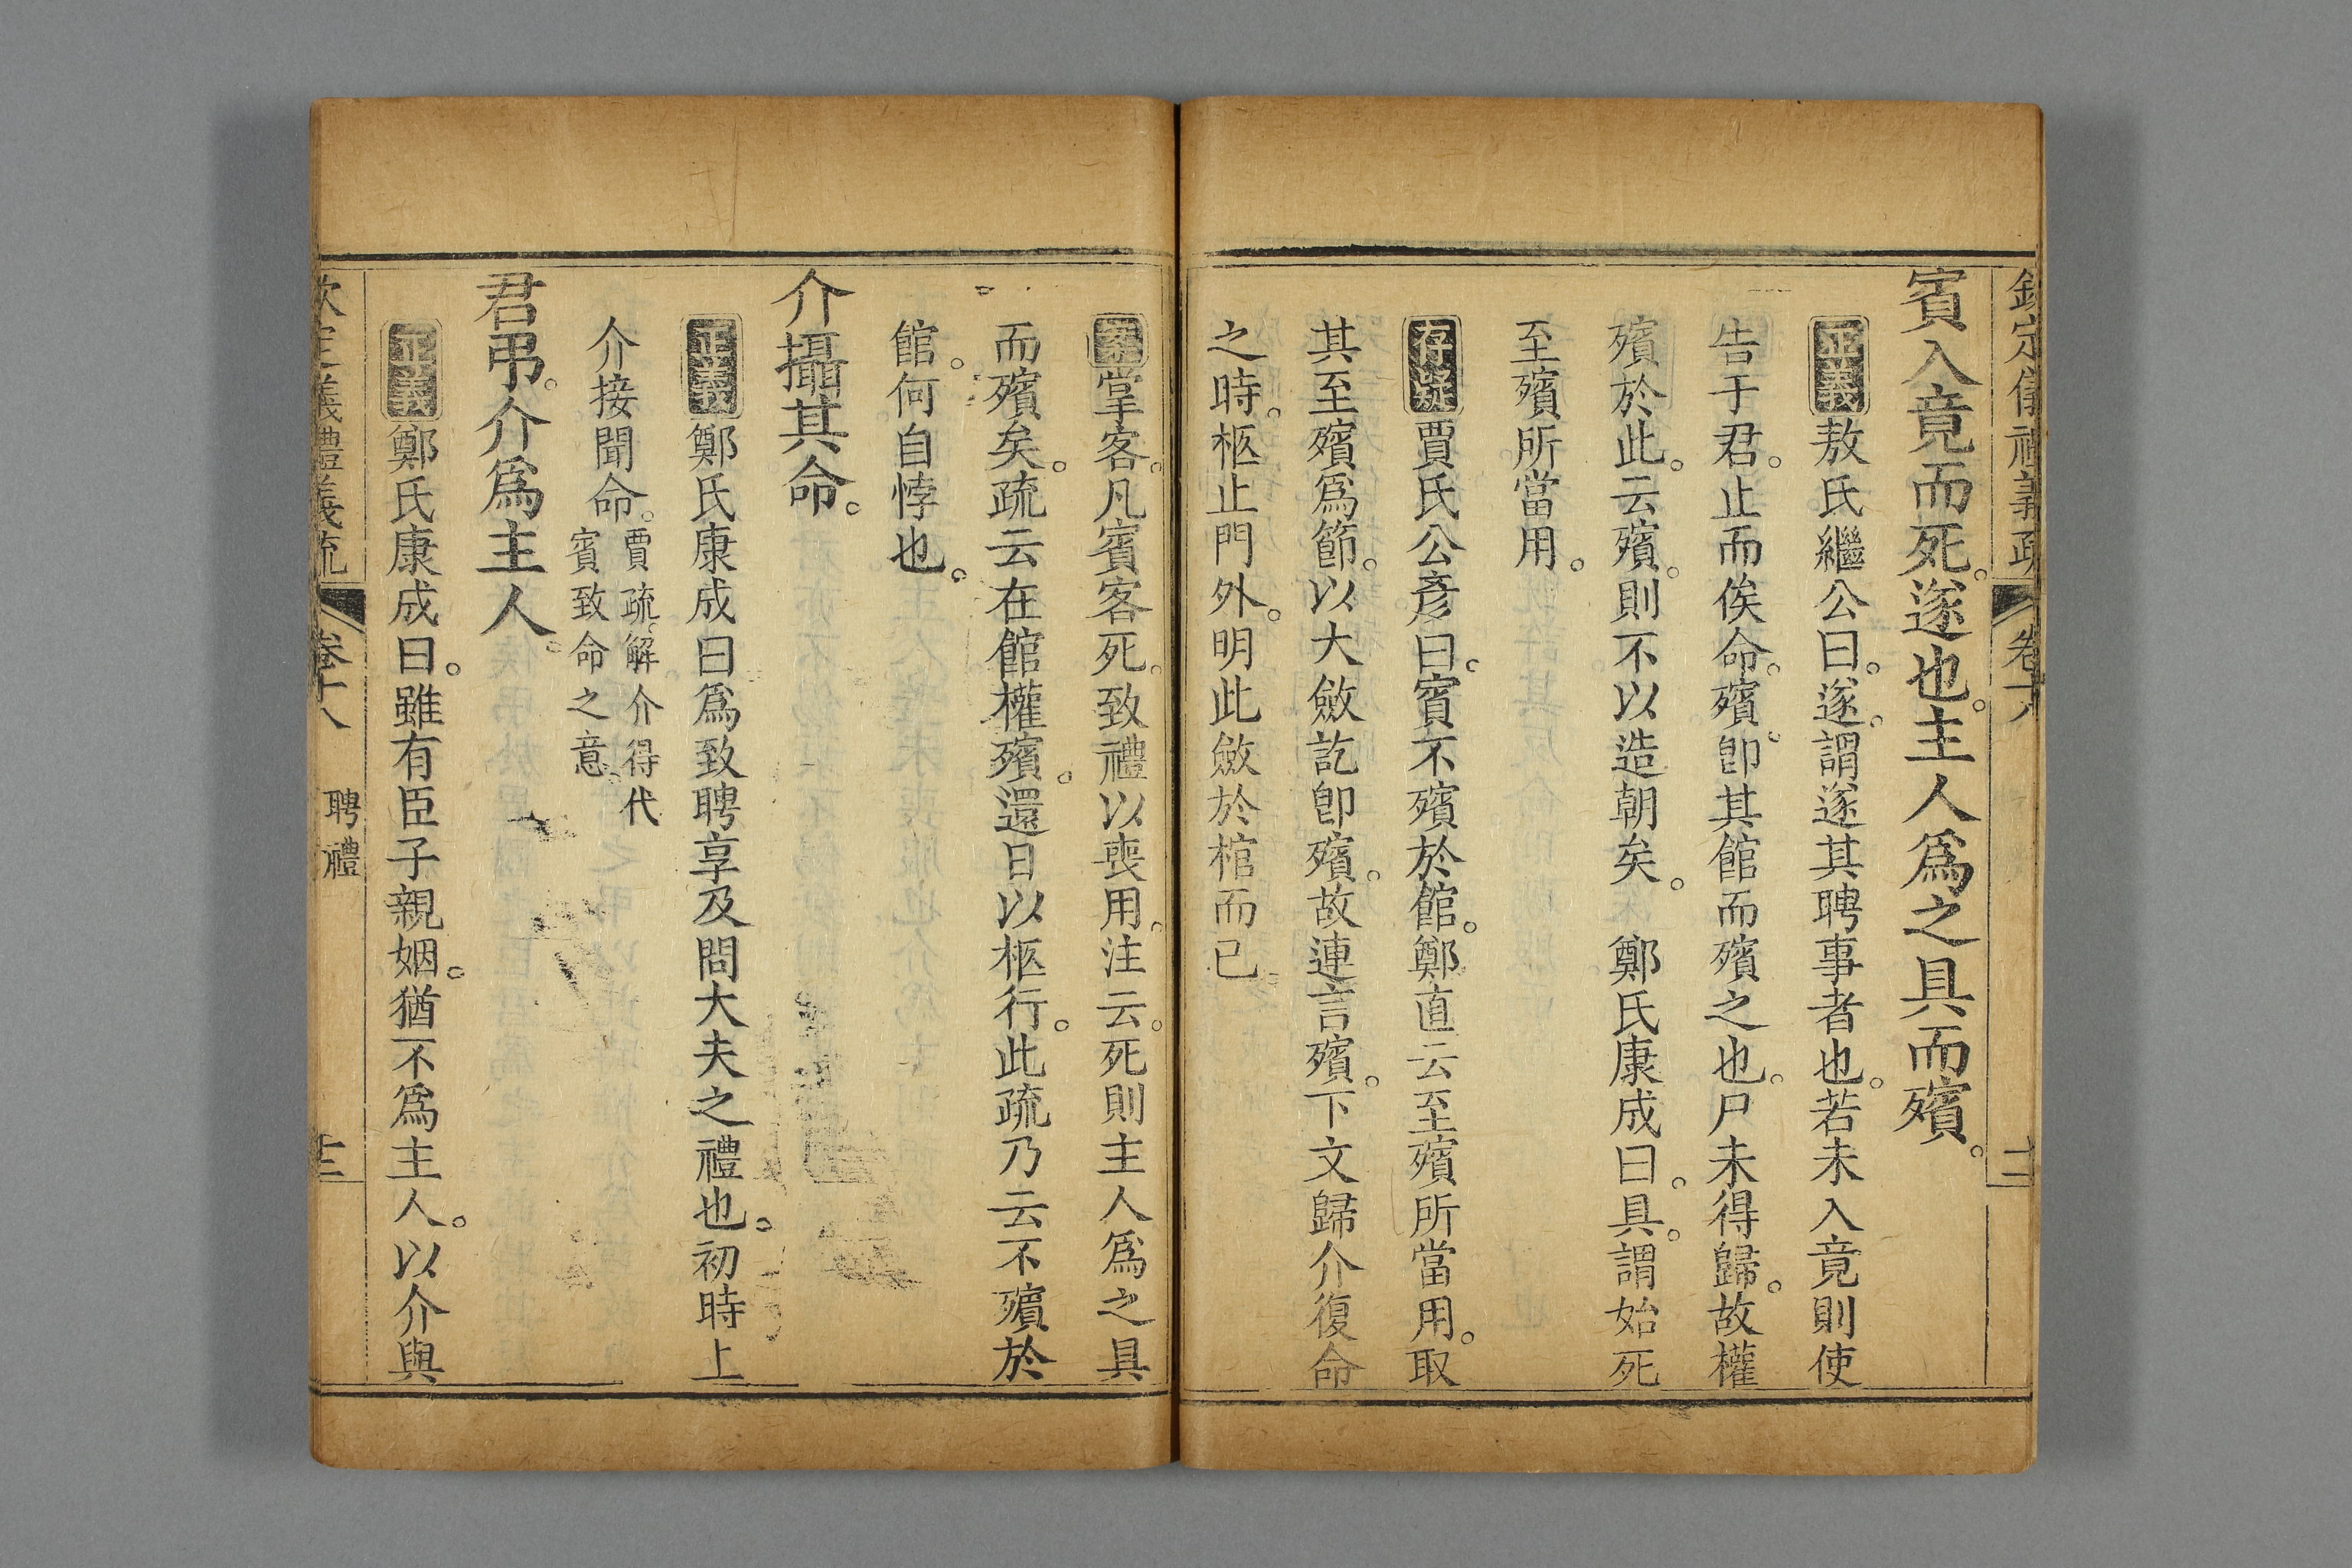 欽定儀禮義疏 卷十八 十二
賓入竟而死。遂也。主人爲之具而殯。
正義敖氏繼公曰。遂。謂遂其聘事者也。若未入竟則使
告于君。止而俟命。殯。卽其館而殯之也。尸未得歸。故權
殯於此。云殯。則不以造朝矣。 鄭氏康成曰。具。謂始死
至殯所當用。
存疑賈氏公彥曰。賓不殯於館。鄭直云至殯所當用。取
其至殯爲節。以大斂訖卽殯。故連言殯。下文歸介復命
之時。柩止門外。明此斂於棺而已。
案掌客。凡賓客死。致禮以喪用。注云。死則主人爲之具
而殯矣。疏云在館權殯。還日以柩行。此疏乃云不殯於
館。何自悖也。
介攝其命。
正義鄭氏康成曰爲致聘享及問大夫之禮也。初時上
介接聞命。賈疏。解介得代賓致命之意。
君弔。介爲主人。
正義鄭氏康成曰。雖有臣子親姻。猶不爲主人。以介與
欽定儀禮義疏 卷十八 聘禮 十三